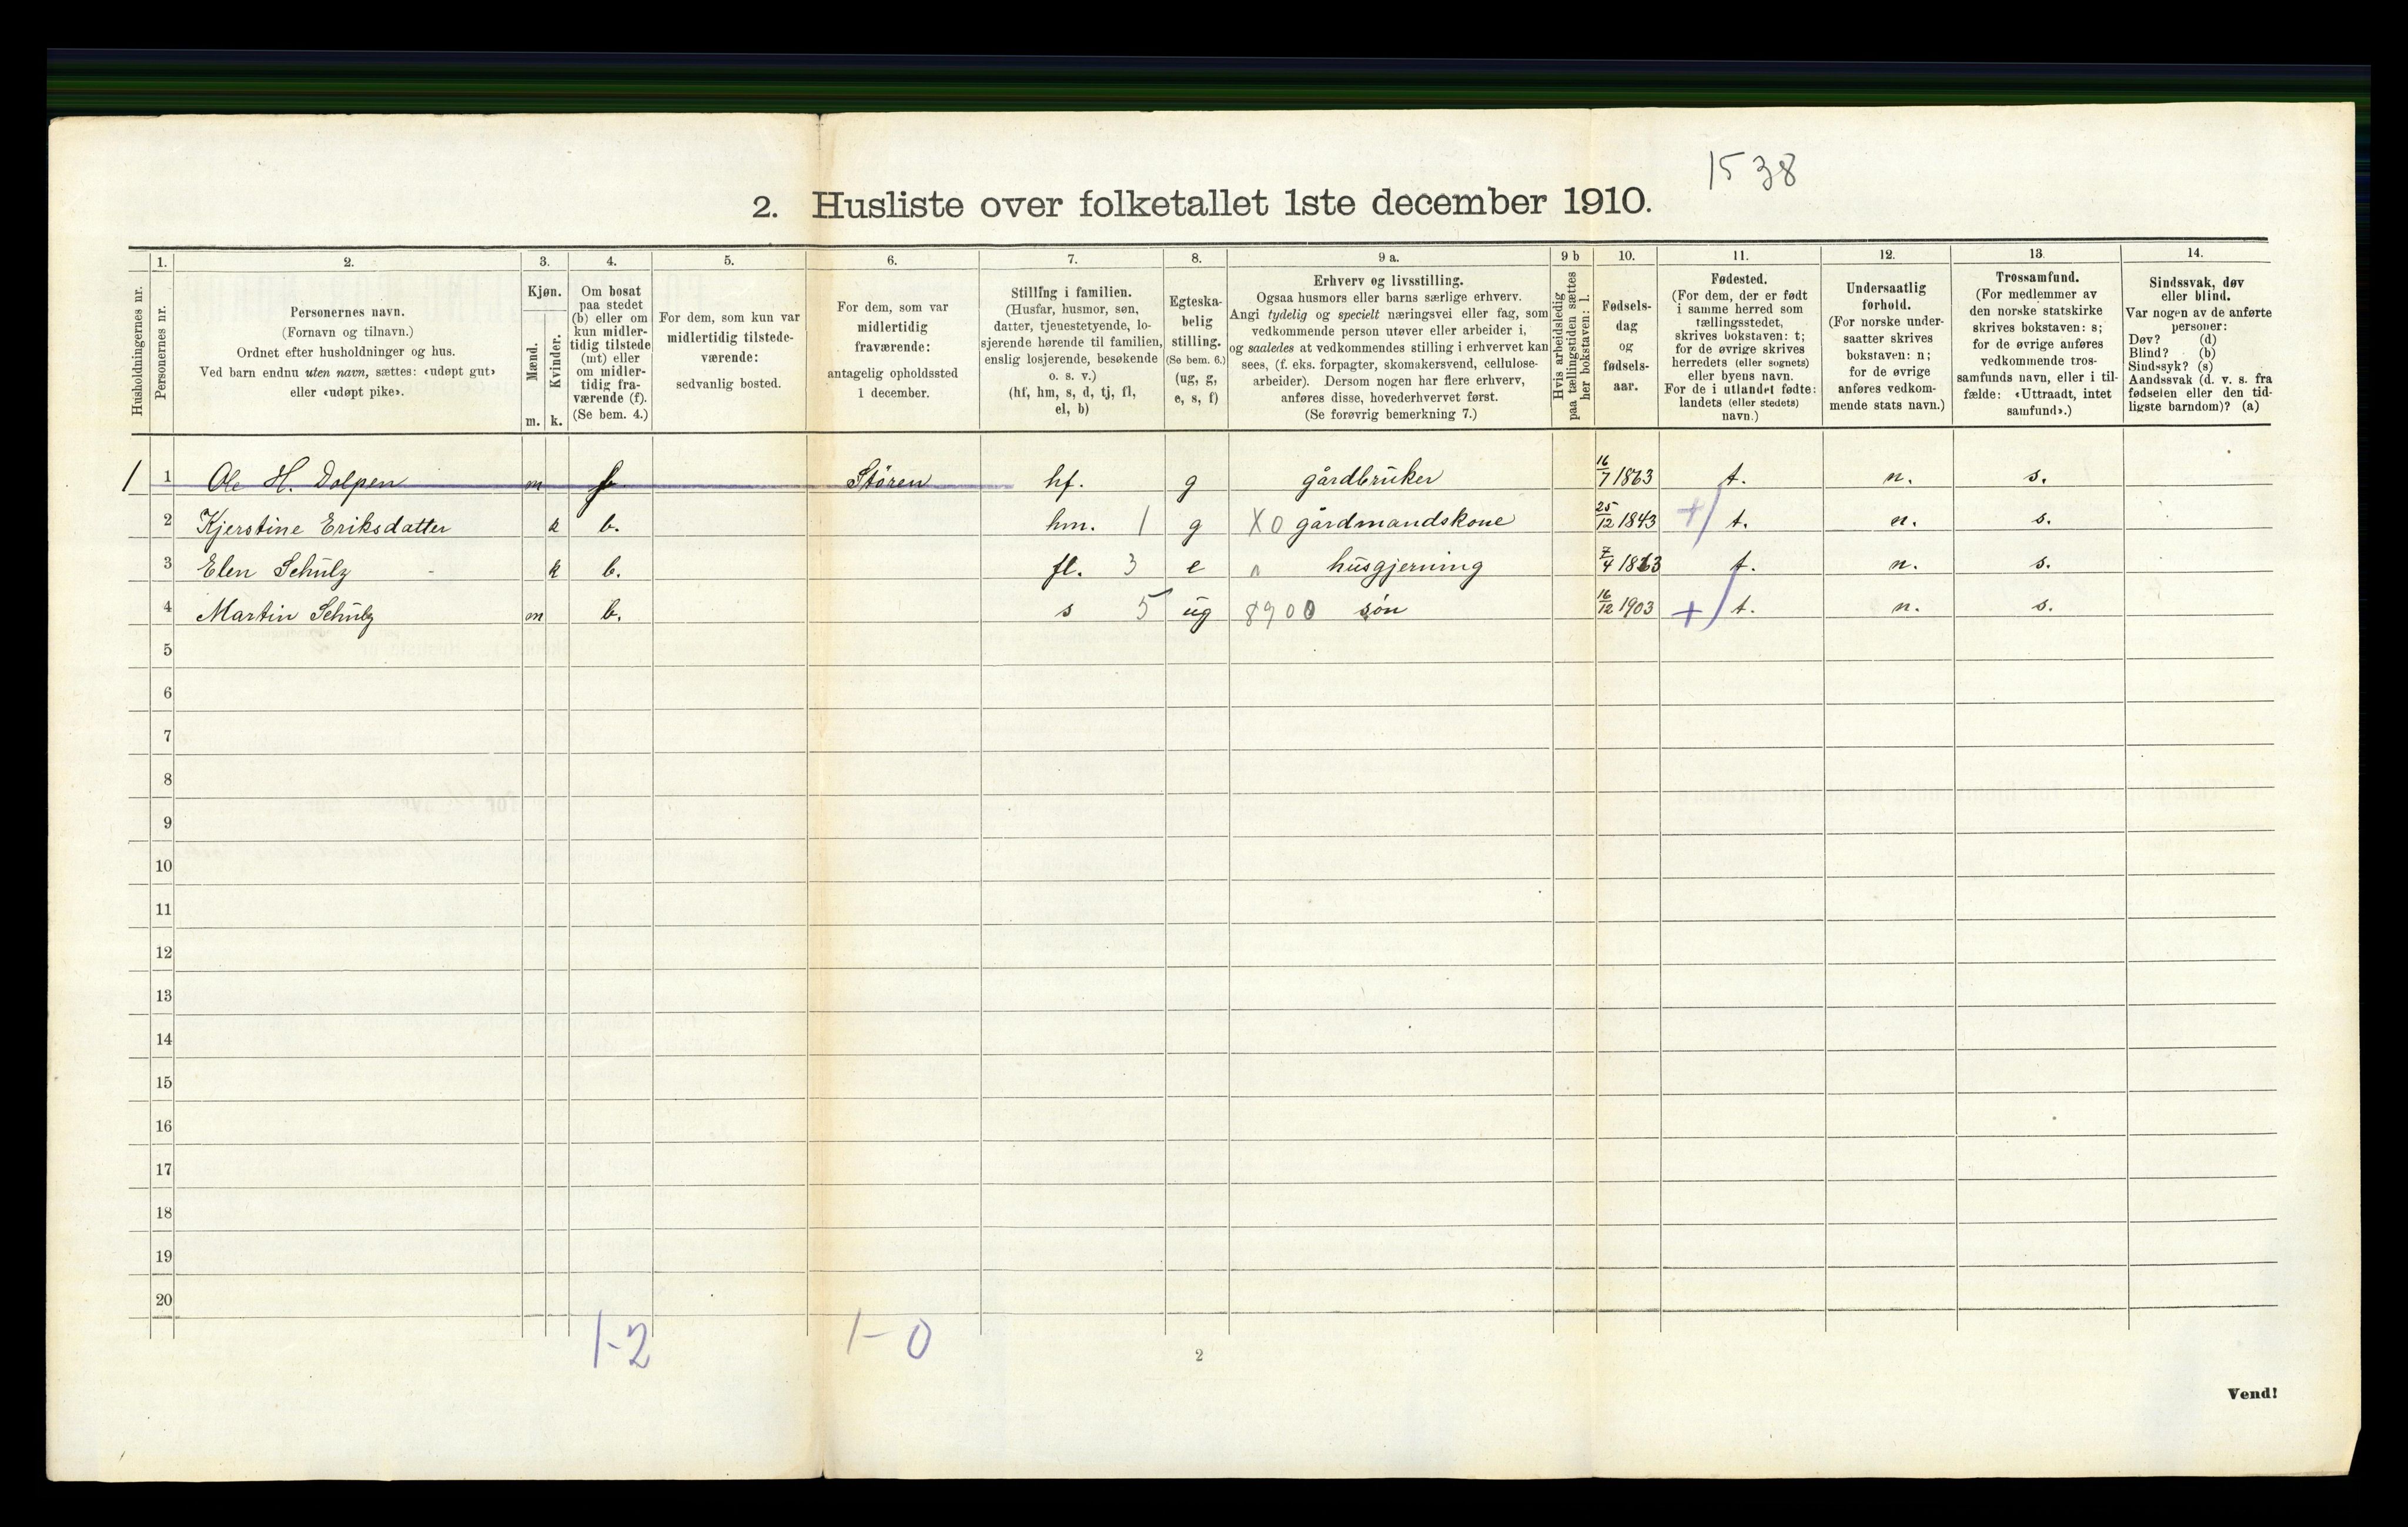 1538
2. Husliste over folketallet 1ste december 1910.
Husholdningernes nr.
1.
Personernes nr.
2.
Personernes navn.
(Fornavn og tilnavn.)
Ordnet efter husholdninger og hus.
Ved barn endnu uten navn, sættes: «udøpt gut»
eller «udøpt pike».
3.
Kjøn.
Mænd.
Kvinder.
m. k.
4.
Om bosat
paa stedet
(b) eller om
kun midler-
tidig tilstede
(mt) eller
om midler-
tidig fra-
værende (f).
(Se bem. 4.)
5.
For dem, som kun var
midlertidig tilstede-
værende:
sedvanlig bosted.
6.
For dem, som var
midlertidig
fraværende:
antagelig opholdssted
1 december.
7.
Stilling i familien.
(Husfar, husmor, søn,
datter, tjenestetyende, lo-
sjerende hørende til familien,
enslig losjerende, besøkende
o. s. v.)
(hf, hm, s, d, tj, fl,
el, b)
8.
Egteska-
belig
stilling.
(Se bem. 6.)
(ug, g,
e, s, f)
9 a.
Erhverv og livsstilling.
Ogsaa husmors eller barns særlige erhverv.
Angi tydelig og specielt næringsvei eller fag, som
vedkommende person utøver eller arbeider i,
og saaledes at vedkommendes stilling i erhvervet kan
sees, (f. eks. forpagter, skomakersvend, cellulose-
arbeider). Dersom nogen har flere erhverv,
anføres disse, hovederhvervet først.
(Se forøvrig bemerkning 7.)
9 b
Hvis arbeidsledig
paa tællingstiden sættes
her bokstaven: l.
10.
Fødsels-
dag
og
fødsels-
aar.
11.
Fødested.
(For dem, der er født
i samme herred som
tællingsstedet,
skrives bokstaven: t;
for de øvrige skrives
herredets (eller sognets)
eller byens navn.
For de i utlandet fødte:
landets (eller stedets)
navn.)
12.
Undersaatlig
forhold.
(For norske under-
saatter skrives
bokstaven: n;
for de øvrige
anføres vedkom-
mende stats navn.)
13.
Trossamfund.
(For medlemmer av
den norske statskirke
skrives bokstaven: s;
for de øvrige anføres
vedkommende tros-
samfunds navn, eller i til-
fælde: «Uttraadt, intet
samfund».)
14.
Sindssvak, døv
eller blind.
Var nogen av de anførte
personer:
Døv? (d)
Blind? (b)
Sindssyk? (s)
Aandssvak (d. v. s. fra
fødselen eller den tid-
ligste barndom)? (a)
1 1 Ole H. Dolpen m f Støren hf. g gårdbruker 16/7 1863 t. n. s.
2 Kjerstine Eriksdatter k b. hm. 1 g X0 gårdmandskone 25/12 1843 + t. n. s.
3 Elen Schulz k b. fl. 3 e n husgjerning 7/4 1863 t. n. s.
4 Martin Schulz m b. s 5 ug 8900 søn 16/12 1903 + t. n. s.
5
6
7
8
9
10
11
12
13
14
15
16
17
18
19
20
1-2 1-0
2
Vend!